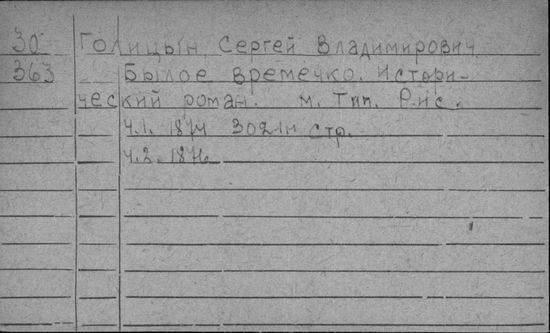 30 Голицын, Сергей Владимирович
363 Былое времечко. Истори-
ческий роман. М. Тип. Рис.
ч.1. 1874 302 стр.
ч.2. 1876